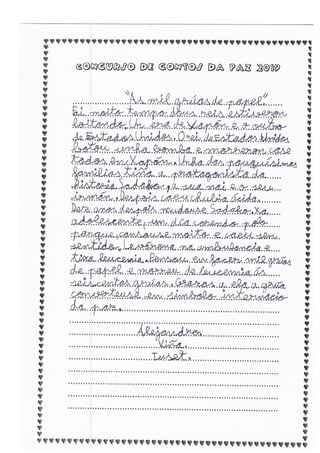 CONCURSO DE CONTOS DA PAZ 2019
"As mil grúas de papel"
Fai moito tempo dous reis estiveron
loitando. Un era de Xapón e o outro
de Estados Unidos. O rei de Estados Unidos
botou unha bomba e morreron case
todos en Xapón. Unha das pouquísimas
familias tiña a protagonista da
historia Sadako, a súa nai e o seu
irmán. Despois caeu chuvia ácida.
Dez anos despois mudouse Sadako xa
adolescente, un día correndo polo
parque cansouse moito e caeu sen
sentido. Levárona na ambulancia e
tiña leucemia. Pensou en facer mil grúas
de papel e morreu de leucemia ás
seiscentas grúas. Grazas a ela a grúa
converteuse en símbolo internacio
da paz.
Alejandro
Viña
Tuset.